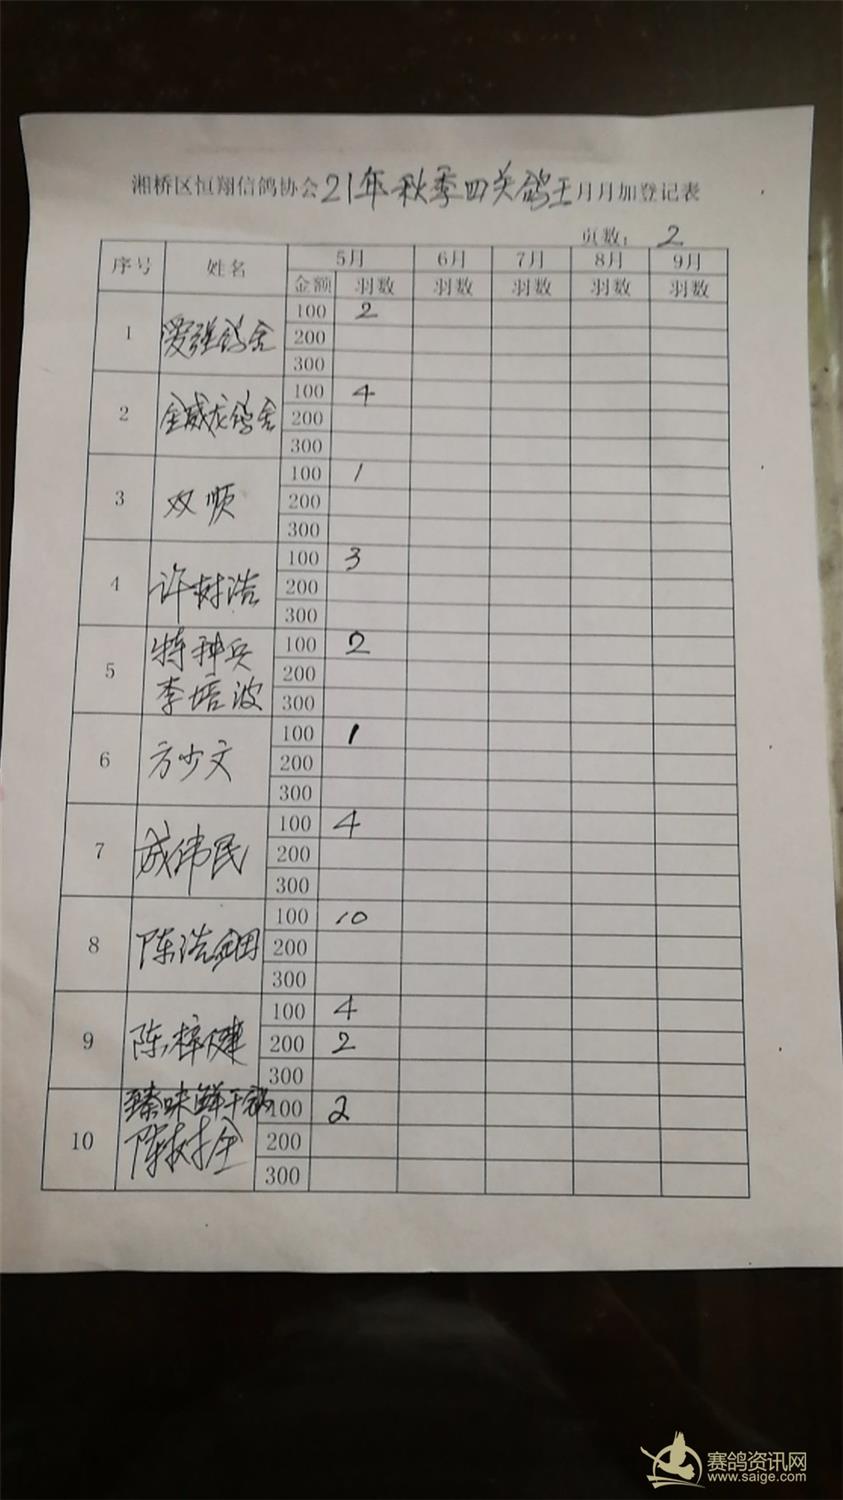 湘桥区恒翔信鸽协会21年秋季四关鸽王月月加登记表
页数：2
序号 姓名 5月 6月 7月 8月 9月
金额 羽数 羽数 羽数 羽数 羽数
1 爱强鸽舍 100 2
200
300
2 金威龙鸽舍 100 4
200
300
3 双顺 100 1
200
300
4 许树浩 100 3
200
300
5 特种兵 李培波 100 2
200
300
6 方少文 100 1
200
300
7 成伟民 100 4
200
300
8 陈浩 100 10
200
300
9 陈梓健 100 4
200 2
300
10 臻味鲜干锅 陈树全 100 2
200
300
赛鸽资讯网
www.saige.com